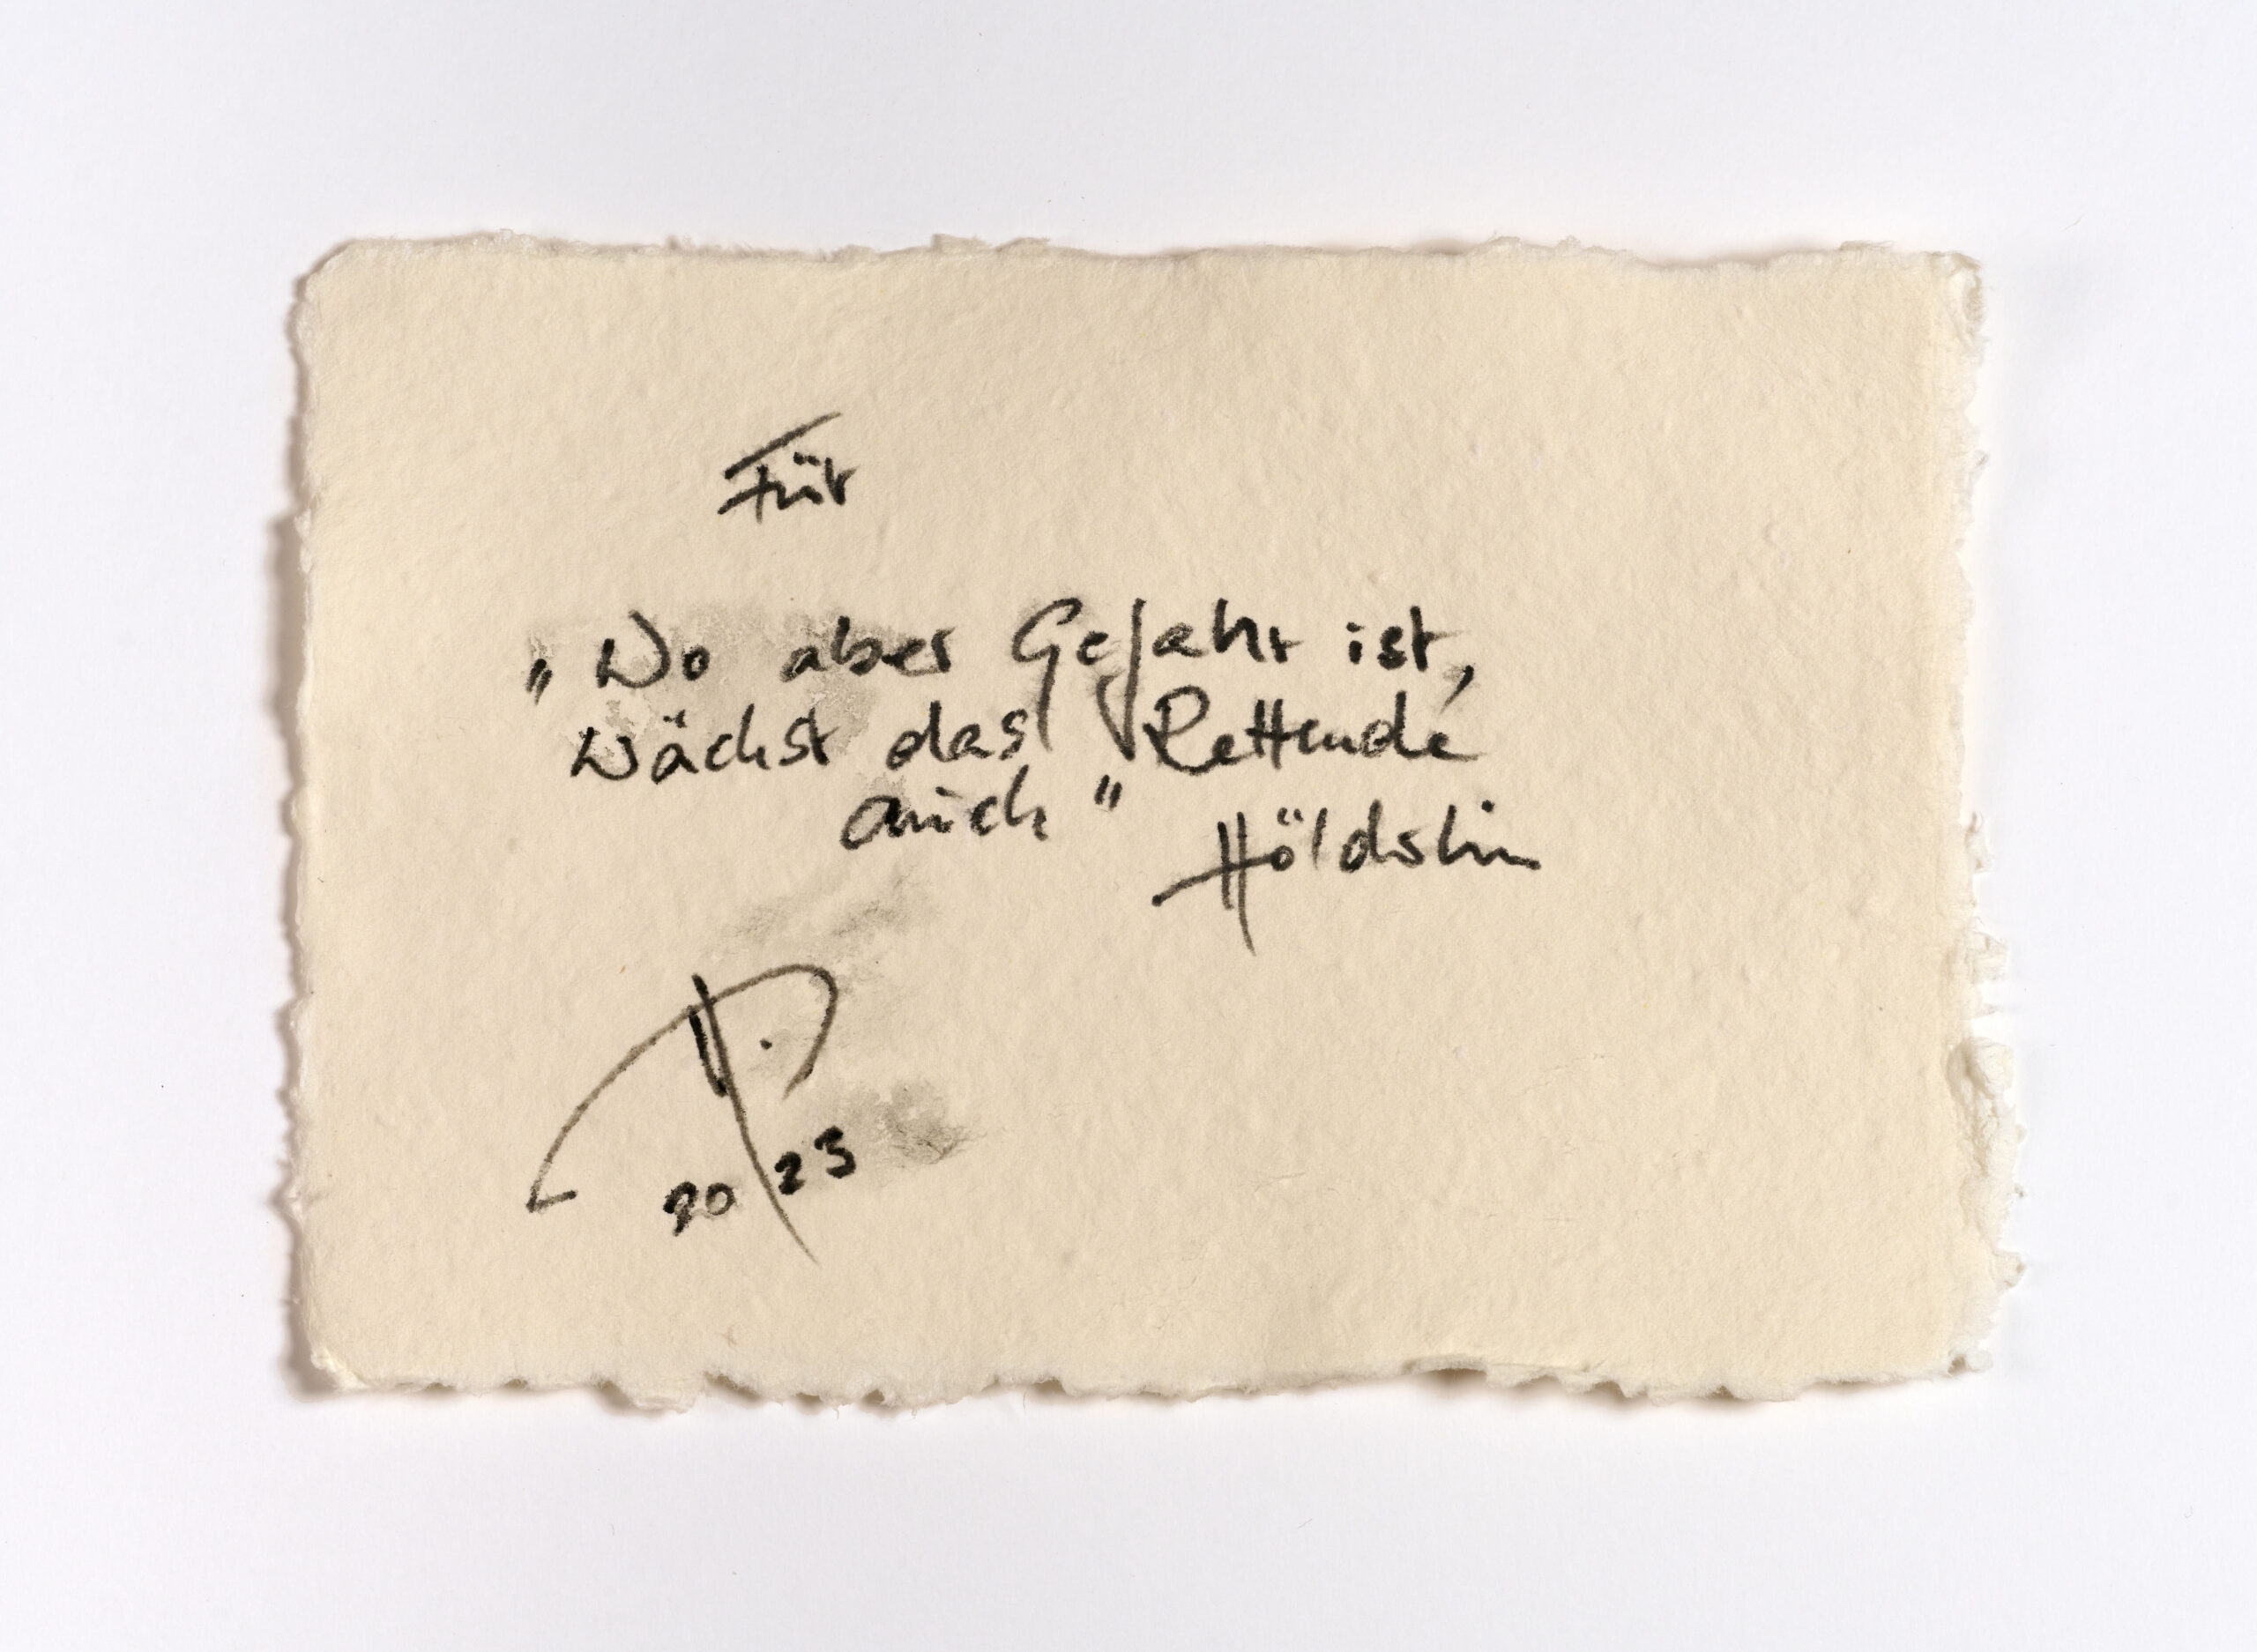 Für
„Wo aber Gefahr ist,
wächst das Rettende
auch"
Hölderlin
2023